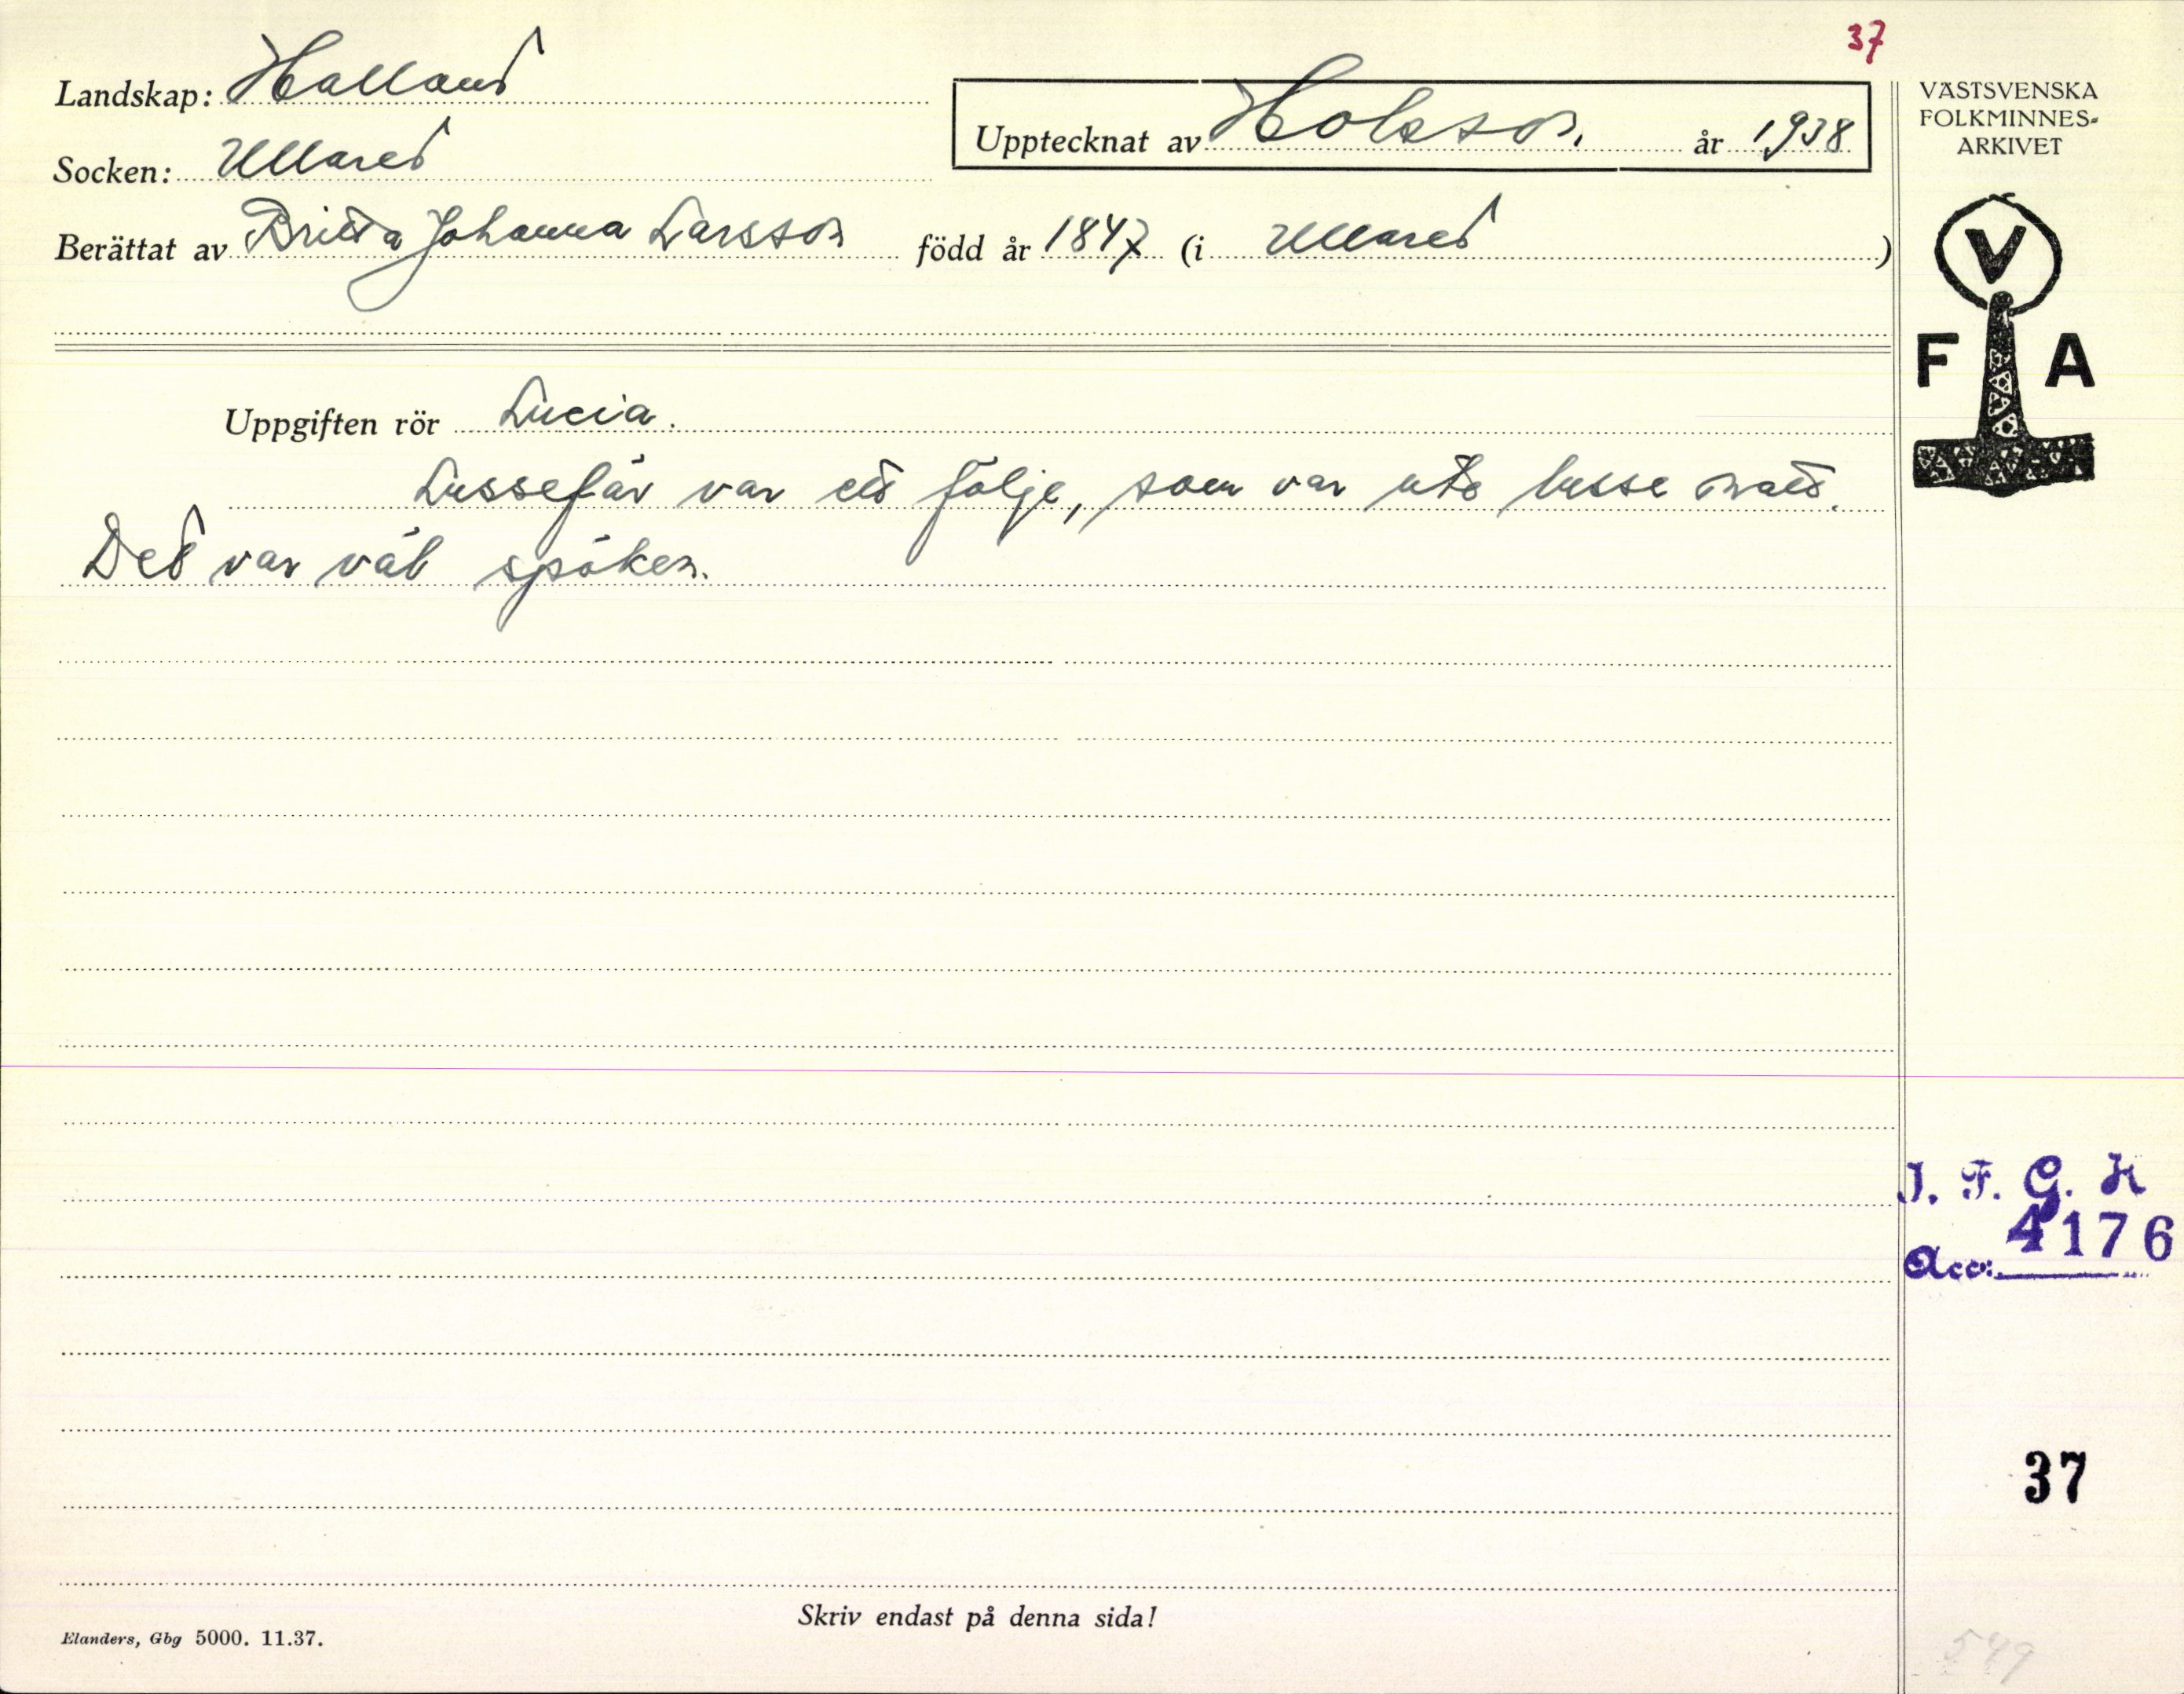 37
Landskap: Halland
Socken: Ullared
Upptecknat av Holsson. år 1938
Berättat av Britta Johanna Larsson född år 1847 (i Ullared)
VÄSTSVENSKA
FOLKMINNES-
ARKIVET
V
F A
Uppgiften rör Lucia.
Lussefär var ett följe, som var ute lusse natt.
Det var väl spöken.
I. F. G. H
4176
Acc:
37
Skriv endast på denna sida!
Elanders, Gbg 5000. 11.37.
549